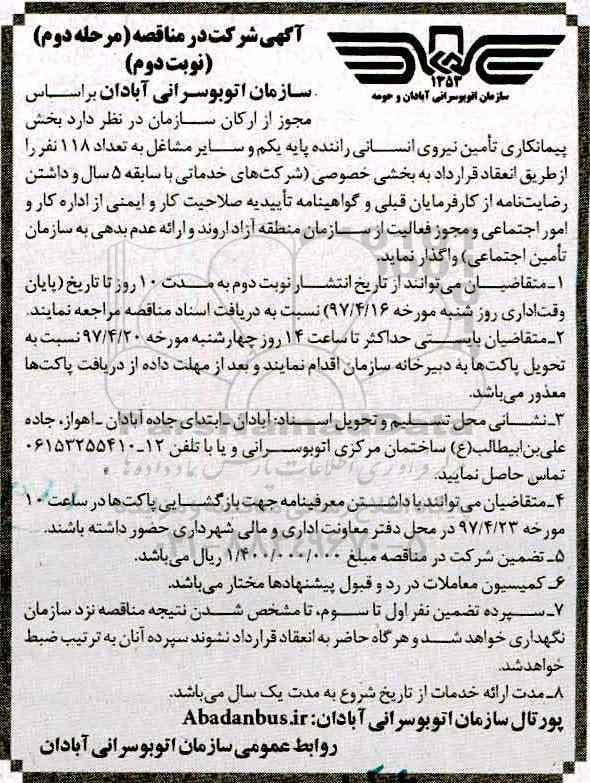 آگهی شرکت در مناقصه (مرحله دوم)
(نوبت دوم)
۱۳۵۳
سازمان اتوبوسرانی آبادان و حومه
سازمان اتوبوسرانی آبادان براساس
مجوز از ارکان سازمان در نظر دارد بخش
پیمانکاری تأمین نیروی انسانی راننده پایه یکم و سایر مشاغل به تعداد ۱۱۸ نفر را
از طریق انعقاد قرارداد به بخشی خصوصی (شرکت‌های خدماتی با سابقه ۵ سال و داشتن
رضایت‌نامه از کارفرمایان قبلی و گواهینامه تأییدیه صلاحیت کار و ایمنی از اداره کار و
امور اجتماعی و مجوز فعالیت از سازمان منطقه آزاد اروند و ارائه عدم بدهی به سازمان
تأمین اجتماعی) واگذار نماید.
۱ـ متقاضیان می‌توانند از تاریخ انتشار نوبت دوم به مدت ۱۰ روز تا تاریخ (پایان
وقت اداری روز شنبه مورخه ۹۷/۴/۱۶) نسبت به دریافت اسناد مناقصه مراجعه نمایند.
۲ـ متقاضیان بایستی حداکثر تا ساعت ۱۴ روز چهارشنبه مورخه ۹۷/۴/۲۰ نسبت به
تحویل پاکت‌ها به دبیرخانه سازمان اقدام نمایند و بعد از مهلت داده از دریافت پاکت‌ها
معذور می‌باشد.
۳ـ نشانی محل تسلیم و تحویل اسناد: آبادان ـ ابتدای جاده آبادان ـ اهواز، جاده
علی‌بن‌ابیطالب(ع) ساختمان مرکزی اتوبوسرانی و یا با تلفن ۱۲ـ۰۶۱۵۳۲۵۵۴۱۰
تماس حاصل نمایید.
۴ـ متقاضیان می‌توانند با داشتن معرفینامه جهت بازگشایی پاکت‌ها در ساعت ۱۰
مورخه ۹۷/۴/۲۳ در محل دفتر معاونت اداری و مالی شهرداری حضور داشته باشند.
۵ـ تضمین شرکت در مناقصه مبلغ ۱/۴۰۰/۰۰۰/۰۰۰ ریال می‌باشد.
۶ـ کمیسیون معاملات در رد و قبول پیشنهادها مختار می‌باشد.
۷ـ سپرده تضمین نفر اول تا سوم، تا مشخص شدن نتیجه مناقصه نزد سازمان
نگهداری خواهد شد و هرگاه حاضر به انعقاد قرارداد نشوند سپرده آنان به ترتیب ضبط
خواهد شد.
۸ـ مدت ارائه خدمات از تاریخ شروع به مدت یک سال می‌باشد.
پورتال سازمان اتوبوسرانی آبادان: Abadanbus.ir
روابط عمومی سازمان اتوبوسرانی آبادان